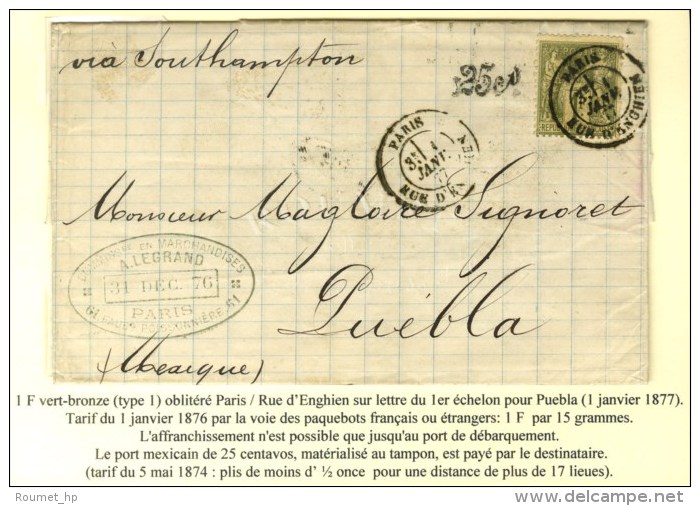 via Southampton
25cs
PARIS
JANV.
RUE D'ENGHIEN
PARIS
3E 1
JANV.
77
RUE D'EN
Monsieur Magloire Signoret
EN MARCHANDISES
A. LEGRAND
31 DEC. 76
PARIS
61 FAUBG POISSONNIÈRE 61
Puébla
(Mexique)
1 F vert-bronze (type 1) oblitéré Paris / Rue d'Enghien sur lettre du 1er échelon pour Puebla (1 janvier 1877).
Tarif du 1 janvier 1876 par la voie des paquebots français ou étrangers: 1 F par 15 grammes.
L'affranchissement n'est possible que jusqu'au port de débarquement.
Le port mexicain de 25 centavos, matérialisé au tampon, est payé par le destinataire.
(tarif du 5 mai 1874 : plis de moins d' ½ once pour une distance de plus de 17 lieues).
© Roumet_hp
delcampe.net